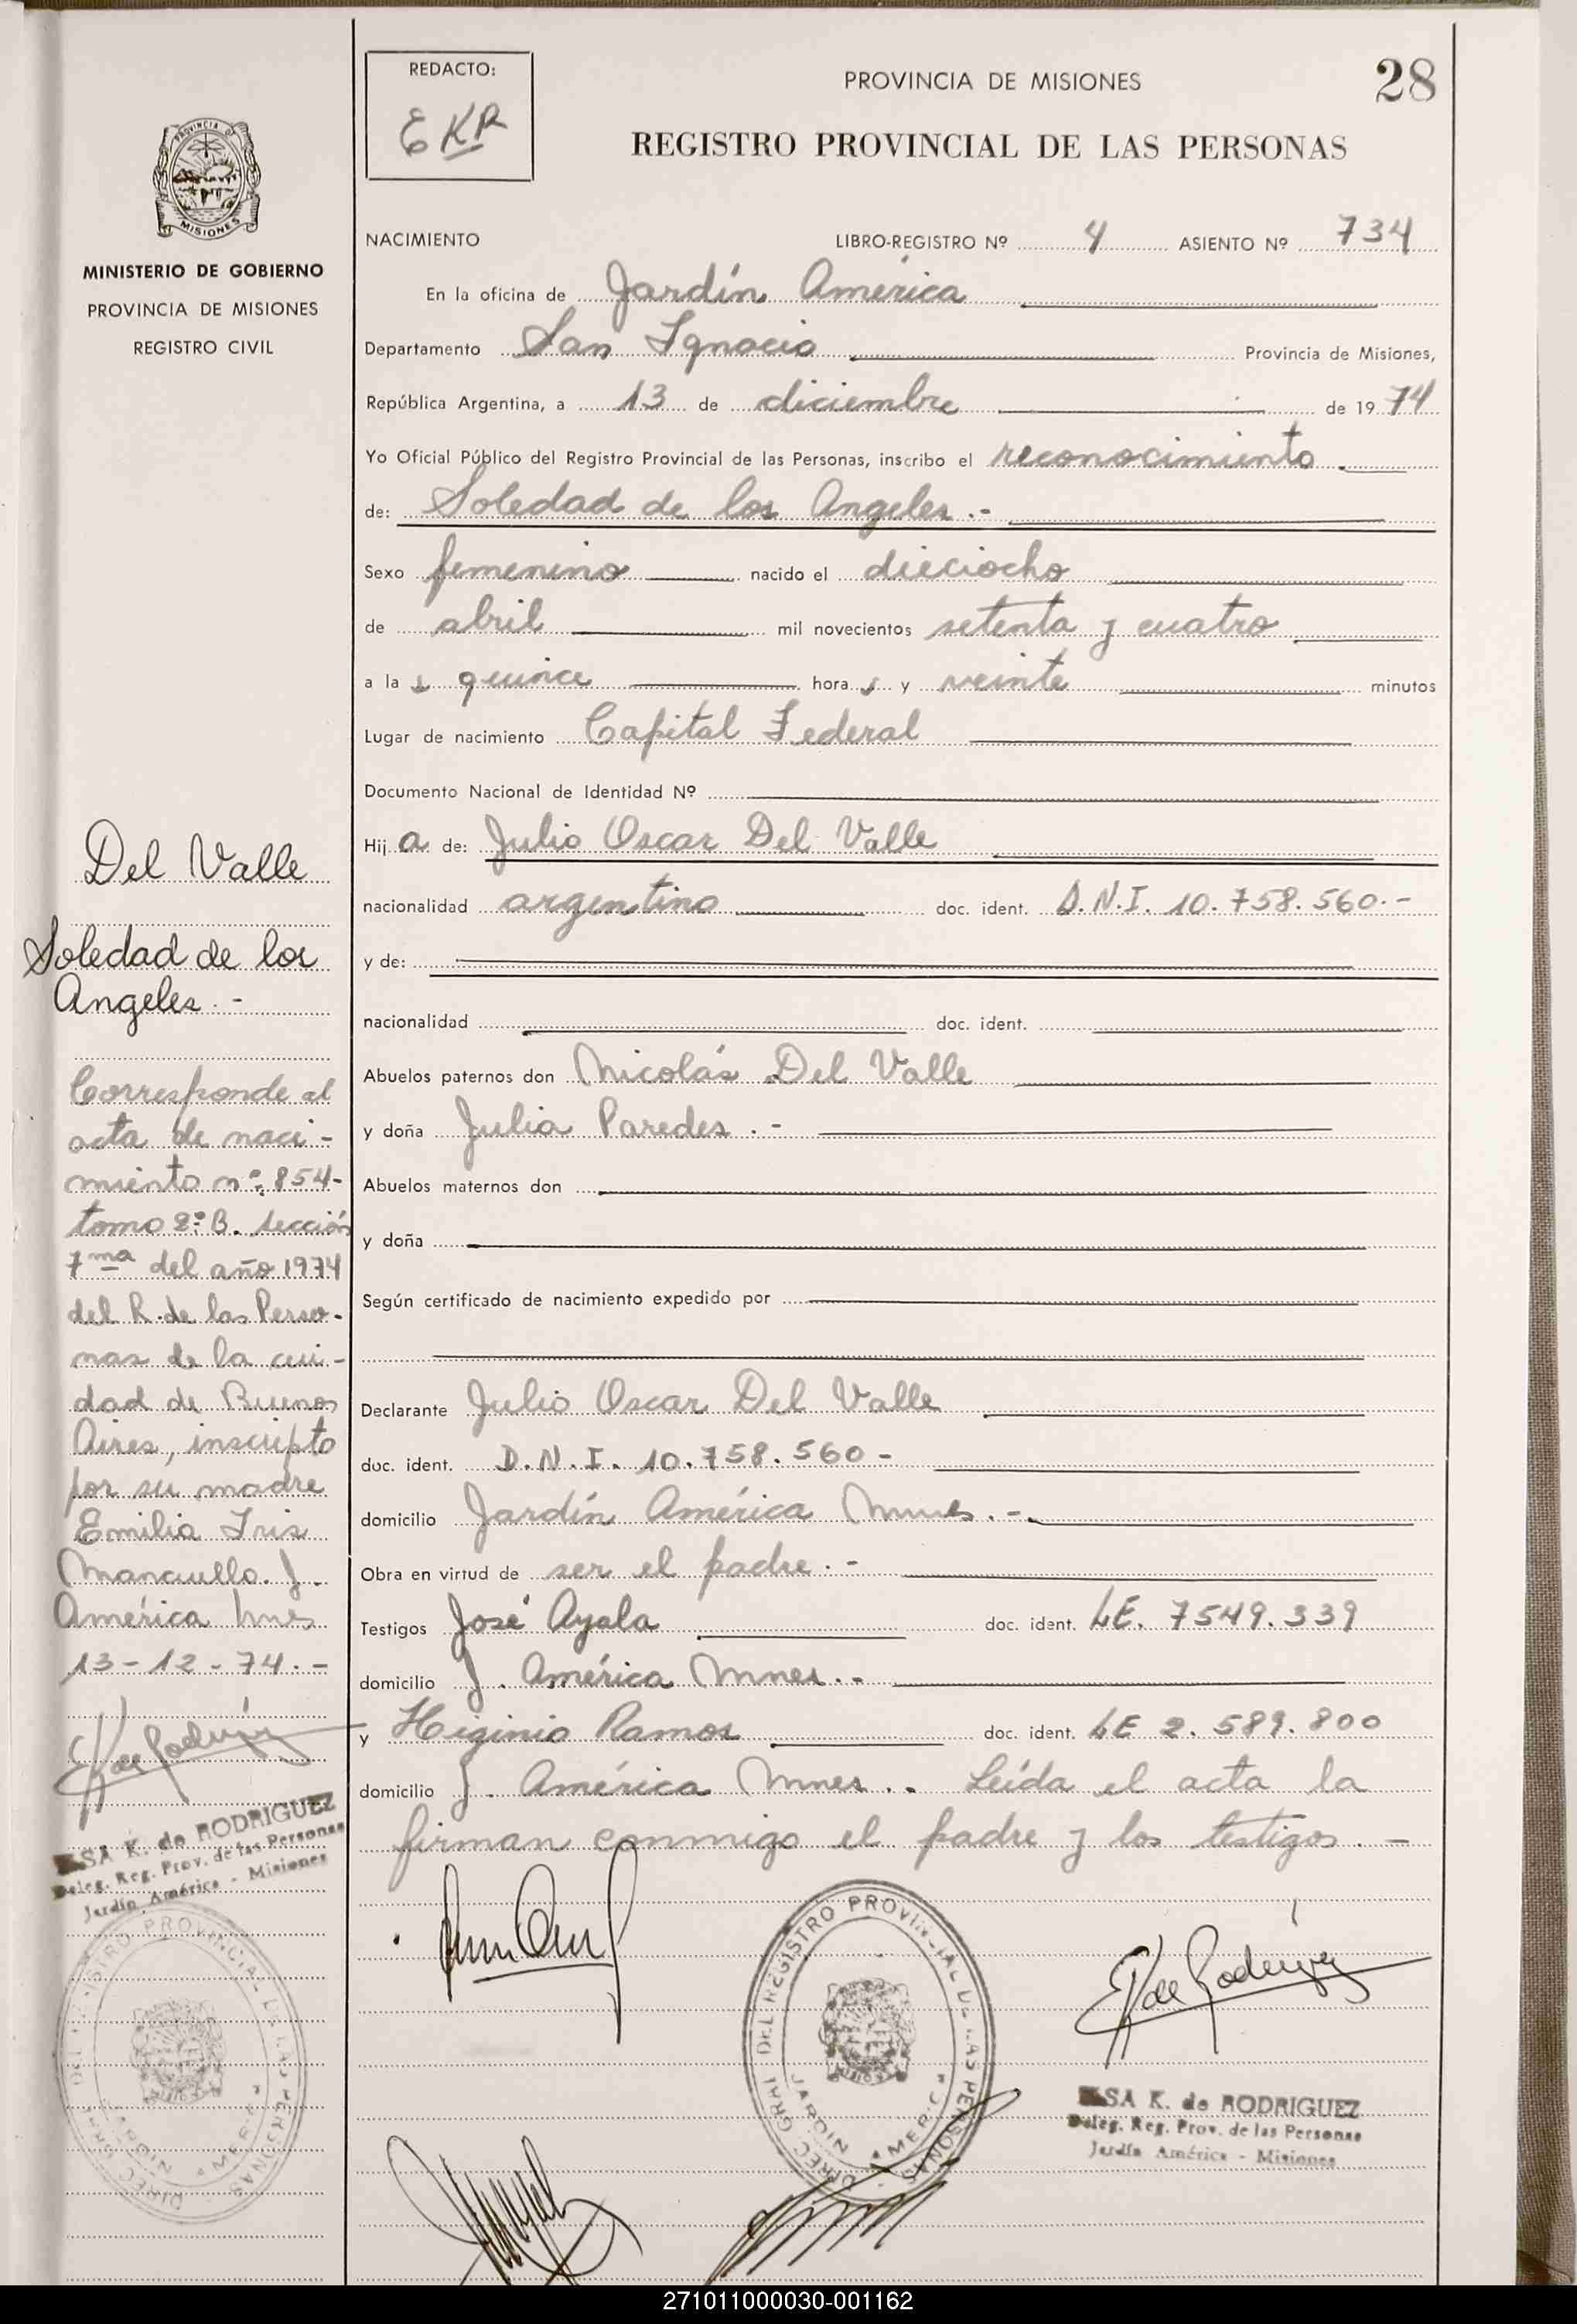 PROVINCIA DE
MISIONES
MINISTERIO DE GOBIERNO
PROVINCIA DE MISIONES
REGISTRO CIVIL
Del Valle
Soledad de los
Angeles.-
Corresponde al
acta de naci-
miento nº 854-
tomo 2º B. sección
7ma del año 1974
del R. de las Perso-
nas de la ciu-
dad de Buenos
Aires, inscripto
por su madre
Emilia Iris
Mancuello. J.
América Mnes
13-12-74.-
ELSA K. de RODRIGUEZ
Deleg. Reg. Prov. de las Personas
Jardín América - Misiones
DIREC GRAL DEL REGISTRO PROVINCIAL DE LAS PERSONAS
JARDIN AMERICA
REDACTO:
EKR
PROVINCIA DE MISIONES
28
REGISTRO PROVINCIAL DE LAS PERSONAS
NACIMIENTO LIBRO-REGISTRO Nº 4 ASIENTO Nº 734
En la oficina de Jardín América
Departamento San Ignacio Provincia de Misiones,
República Argentina, a 13 de diciembre de 1974
Yo Oficial Público del Registro Provincial de las Personas, inscribo el reconocimiento
de: Soledad de los Angeles.-
Sexo femenino nacido el dieciocho
de abril mil novecientos setenta y cuatro
a las quince horas y veinte minutos
Lugar de nacimiento Capital Federal
Documento Nacional de Identidad Nº
Hija de: Julio Oscar Del Valle
nacionalidad argentino doc. ident. D.N.I. 10.758.560.-
y de:
nacionalidad doc. ident.
Abuelos paternos don Nicolás Del Valle
y doña Julia Paredes.-
Abuelos maternos don
y doña
Según certificado de nacimiento expedido por
Declarante Julio Oscar Del Valle
doc. ident. D.N.I. 10.758.560-
domicilio Jardín América Mnes.-
Obra en virtud de ser el padre.-
Testigos José Ayala doc. ident. LE. 7549.339
domicilio J. América Mnes.-
y Higinio Ramos doc. ident. LE 2.589.800
domicilio J. América Mnes.. Leída el acta la
firman conmigo el padre y los testigos.-
DIREC GRAL DEL REGISTRO PROVINCIAL DE LAS PERSONAS
JARDIN AMERICA
E K de Rodríguez
ELSA K. de RODRIGUEZ
Deleg. Reg. Prov. de las Personas
Jardín América - Misiones
271011000030-001162